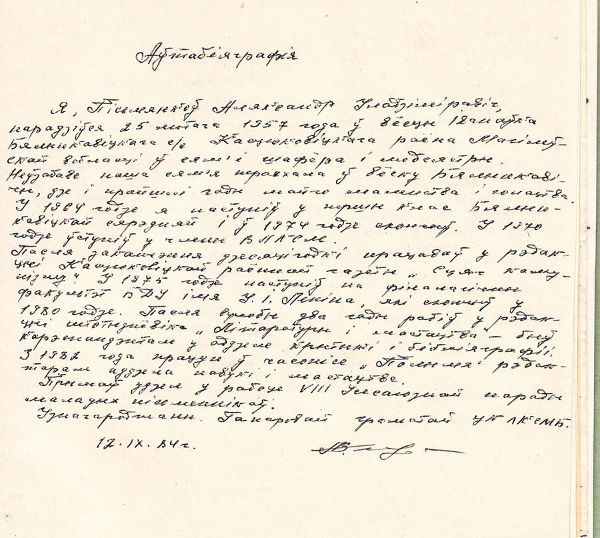 Аўтабіяграфія
Я, Пісьмянкоў Аляксандр Уладзіміравіч,
нарадзіўся 25 лютага 1957 года ў вёсцы Іванаўка
Бялынкавіцкага с/с Касцюковіцкага раёна Магілёў-
скай вобласці ў сям'і шафёра і медсястры.
Неўзабаве наша сям'я пераехала ў вёску Бялынкаві-
чы, дзе і прайшлі гады майго маленства і юнацтва.
У 1964 годзе я паступіў у першы клас Бялын-
кавіцкай сярэдняй і ў 1974 годзе скончыў. У 1970
годзе ўступіў у члены ВЛКСМ.
Пасля заканчэння дзесяцігодкі працаваў у рэдак-
цыі Касцюковіцкай раённай газеты „Сцяг каму-
нізму". У 1975 годзе паступіў на філалагічны
факультэт БДУ імя У.І. Леніна, які скончыў у
1980 годзе. Пасля службы два гады рабіў у рэдак-
цыі штотыднёвіка „Літаратура і мастацтва – быў
карэспандэнтам у аддзеле крытыкі і бібліяграфіі.
З 1982 года працую ў часопісе „Полымя" рэдак-
тарам аддзела навукі і мастацтва.
Прымаў удзел у рабоце VIII Усесаюзнай нарады
маладых пісьменнікаў.
Узнагароджаны Ганаровай граматай ЦК ЛКСМБ.
12.IX.84 г.